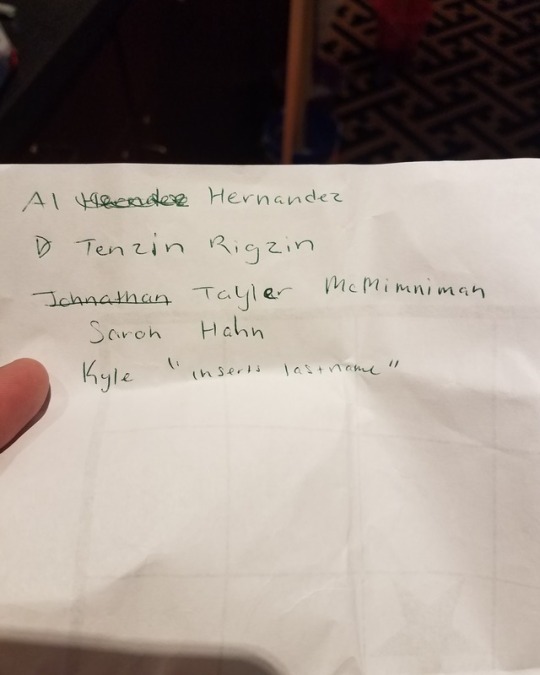 Al Hernandez
D Tenzin Rigzin
Johnathan Tayler McMimniman
Saroh Hahn
Kyle "inserts lastname"